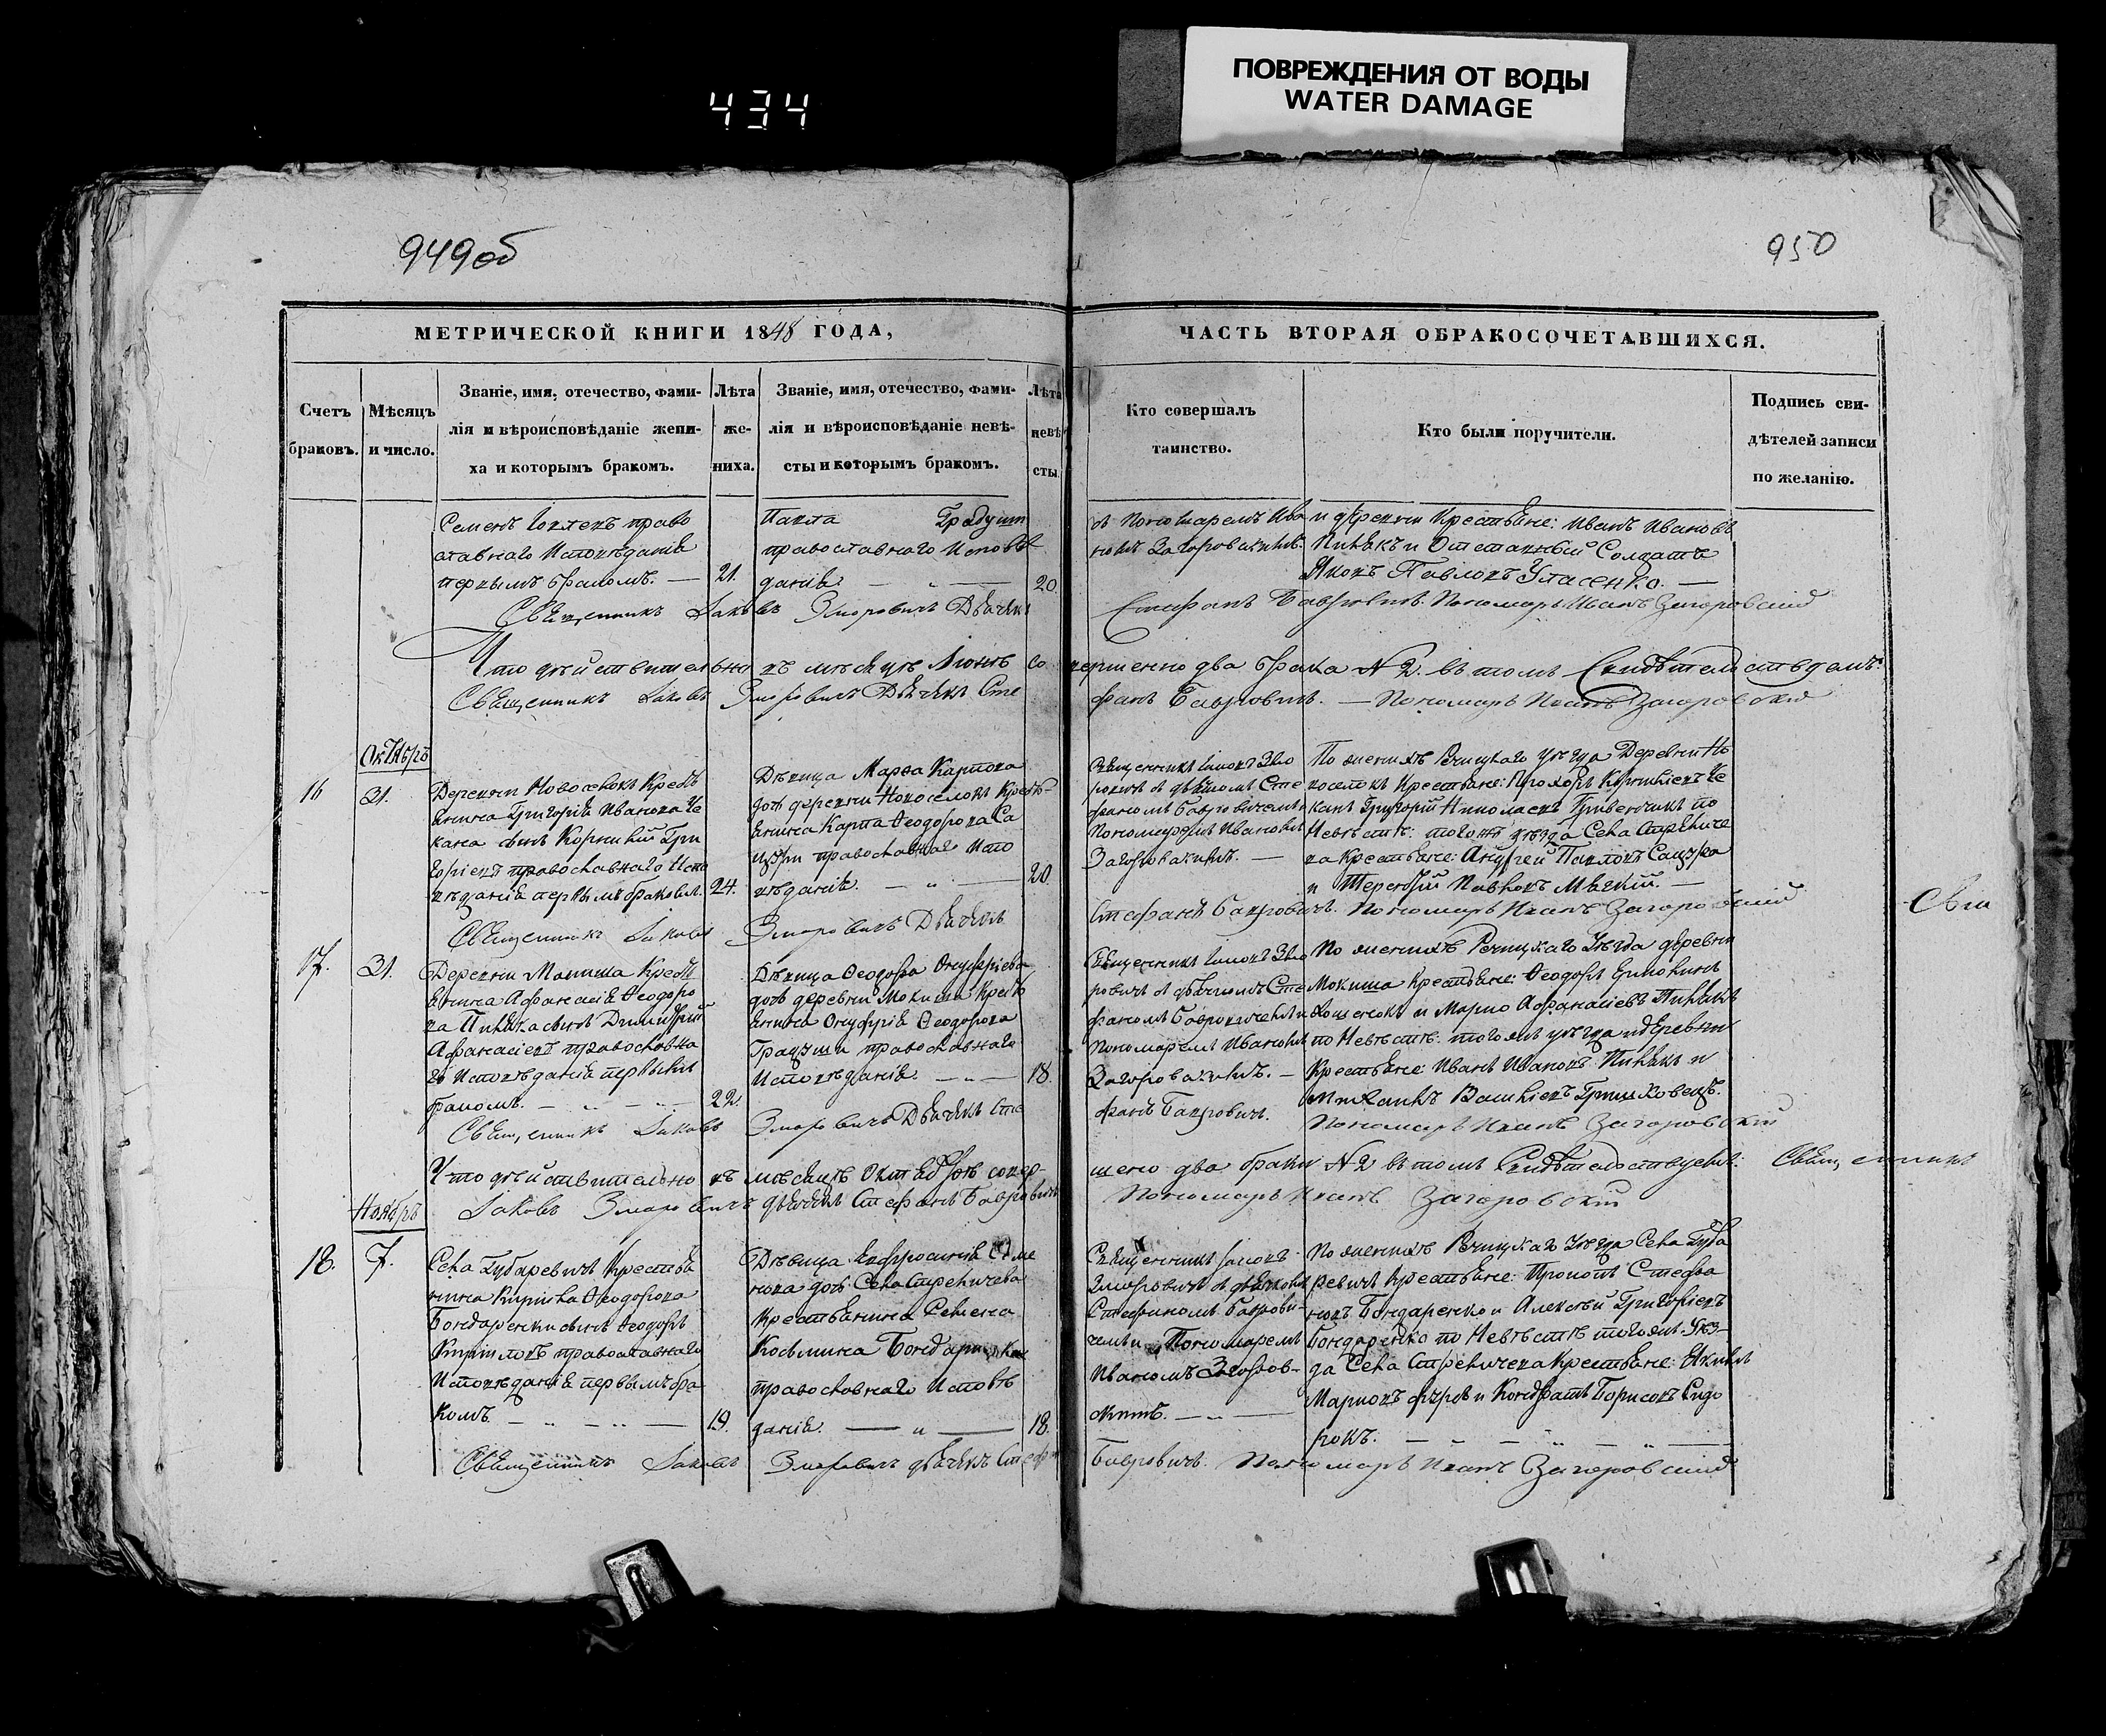 434
ПОВРЕЖДЕНИЯ ОТ ВОДЫ
WATER DAMAGE
949об
950
МЕТРИЧЕСКОЙ КНИГИ 1848 ГОДА,
ЧАСТЬ ВТОРАЯ ОБРАКОСОЧЕТАВШИХСЯ.
Счетъ
браковъ.
Мѣсяцъ
и число.
Званіе, имя, отечество, фами-
лія и вѣроисповѣданіе жени-
ха и которымъ бракомъ.
Лѣта
же-
ниха.
Званіе, имя, отечество, фами-
лія и вѣроисповѣданіе невѣ-
сты и которымъ бракомъ.
Лѣта
невѣ
сты
Кто совершалъ
таинство.
Кто были поручители.
Подпись сви-
дѣтелей записи
по желанію.
Семенъ право
славнаго Исповѣданія
первымъ бракомъ. — 21.
Павла
православнаго Исповѣ
данія. — " — 20
Пономаремъ Ива
номъ Загоровскимъ.
и деревни Крестьяне: Иванъ Ивановъ
Пинякъ и Отставный Солдатъ
Яковъ Павловъ Уласенко. —
Священникъ Іаковъ Эморовичъ Дьячекъ
Стефанъ Бавровичъ. Пономарь Иванъ Загоровскій
Что дѣйствительно въ мѣсяцѣ Іюнѣ со
вершено два брака № 2. въ томъ Свидѣтельствуемъ.
Священникъ Іаковъ Эморовичъ Дьячекъ Сте
фанъ Бавровичъ. — Пономарь Иванъ Загоровскій
Октябрь
16
31.
Деревни Новоселокъ Кресть
янина Григорія Иванова Че
кана сынъ Корнилій Гри
горіевъ православнаго Испо
вѣданія первымъ бракомъ. 24.
Дѣвица Марѳа Карпова
дочь деревни Новоселокъ Кресть
янина Карпа Ѳеодорова Са
православнаго Испо
вѣданія. — " — 20
Священникъ Іаковъ Эмо
ровичъ съ дьячкомъ Сте
фаномъ Бавровичемъ и
Пономаремъ Иваномъ
Загоровскимъ. —
По женихѣ Речицкаго Уѣзда Деревни Но
воселокъ Крестьяне: Прохоръ Корниліевъ Че
канъ Григорій Николаевъ по
Невѣстѣ: тогожъ уѣзда Села Стрѣиче
ва Крестьяне: Андрей Павловъ
и Терентій Павловъ Мягкій. —
Священникъ Іаковъ Эморовичъ Дьячекъ
Стефанъ Бавровичъ. Пономарь Иванъ Загоровскій
Свя
17.
31.
Деревни Мокиша Кресть
янина Афанасія Ѳеодоро
ва Пиняка сынъ Димитрій
Афанасіевъ православна
го Исповѣданія первымъ
бракомъ. — " — " — 22.
Дѣвица Ѳеодора Онуфріева
дочь деревни Мокиши Кресть
янина Онуфрія Ѳеодорова
православнаго
Исповѣданія. — " — 18.
Священникъ Іаковъ Эмо
ровичъ съ дьячкомъ Сте
фаномъ Бавровичемъ и
Пономаремъ Иваномъ
Загоровскимъ. —
По женихѣ Речицкаго Уѣзда деревни
Мокиша Крестьяне: Ѳеодоръ
и Марко Афанасіевъ Пинякъ
по Невѣстѣ: тогожъ уѣзда и деревни
Крестьяне: Иванъ Ивановъ Пинякъ и
Священникъ Іаковъ Эморовичъ Дьячекъ Сте
фанъ Бавровичъ. Пономарь Иванъ Загоровскій
Что дѣйствительно въ мѣсяцѣ Октябрѣ совер-
шено два брака № 2 въ томъ Свидѣтельствуемъ. Священникъ
Іаковъ Эморовичъ дьячекъ Стефанъ Бавровичъ
Пономарь Иванъ Загоровскій
Ноябрь
18.
7.
Села Губаревичъ Крестья
нина Кирила Ѳеодорова
Бондаренки сынъ Ѳеодоръ
Кириловъ православнаго
Исповѣданія первымъ бра
комъ. — " — " — 19.
Дѣвица Ефросинія Семе
нова дочь Села Стреичева
Крестьянина Семена
Косьмина
православнаго Исповѣ
данія. — " — 18.
Священникъ Іаковъ
Эморовичъ съ дьячкомъ
Стефаномъ Баврови-
чемъ и Пономаремъ
Иваномъ Загоров-
скимъ. — " —
По женихѣ Речицкаго Уѣзда Села Губа
ревичъ Крестьяне: Прокопъ Стефа
новъ Бондаренко и Алексѣй Григоріевъ
Бондаренко по Невѣстѣ тогожъ Уѣз-
да Села Стреичева Крестьяне:
и Кондратъ Борисовъ Сидо
рокъ. —
Священникъ Іаковъ Эморовичъ дьячекъ Стефан
Бавровичъ. Пономарь Иванъ Загоровскій